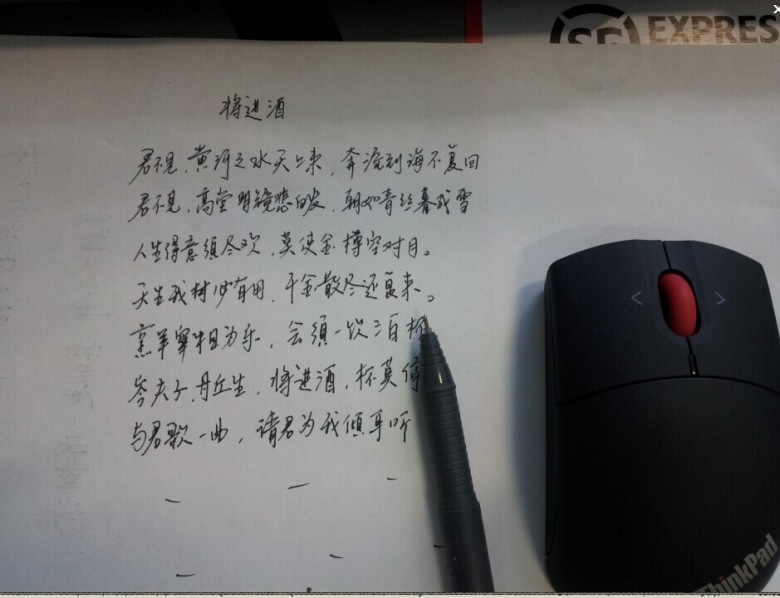 SF EXPRES
将进酒
君不见,黄河之水天上来,奔流到海不复回
君不见,高堂明镜悲白发,朝如青丝暮成雪
人生得意须尽欢,莫使金樽空对月。
天生我材必有用,千金散尽还复来。
烹羊宰牛且为乐,会须一饮三百杯
岑夫子,丹丘生,将进酒,杯莫停
与君歌一曲,请君为我倾耳听
ThinkPad